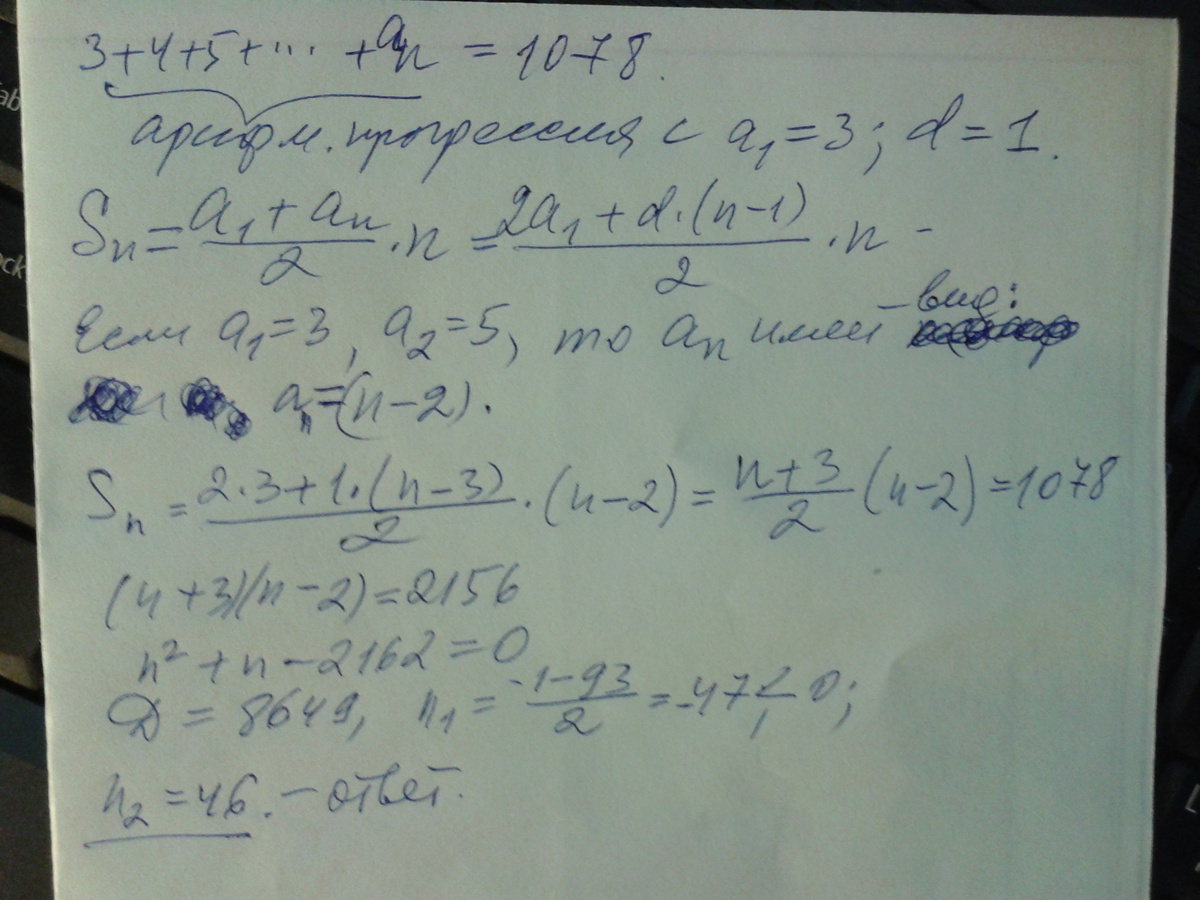 3+4+5+... +an = 1078.
арифм. прогрессия с a₁=3; d=1.
Sn = (a₁+an)/2 · n = (2a₁+d·(n-1))/2 · n -
Если a₁=3, a₂=5, то an имеет вид:
an=(n-2).
Sn = (2·3+1·(n-3))/2 · (n-2) = (n+3)/2 (n-2) = 1078
(n+3)(n-2)=2156
n²+n-2162=0
D = 8649, n₁ = (-1-93)/2 = -47 < 0;
n₂ = 46. - ответ.